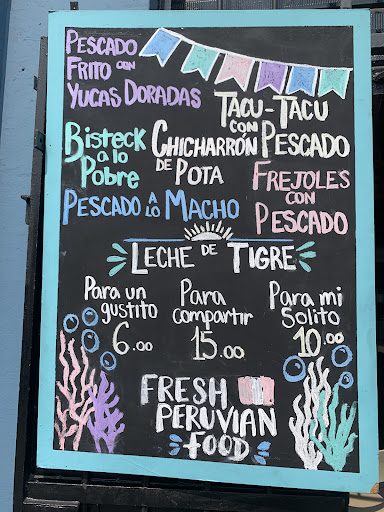 Pescado
Frito con
Yucas Doradas
Tacu-Tacu
con
Pescado
Bisteck
a lo
Pobre
Chicharrón
de
Pota
Frejoles
con
Pescado
Pescado a lo Macho
Leche de Tigre
Para un
gustito
6.00
Para
compartir
15.00
Para mi
Solito
10.00
FRESH
PERUVIAN
FOOD